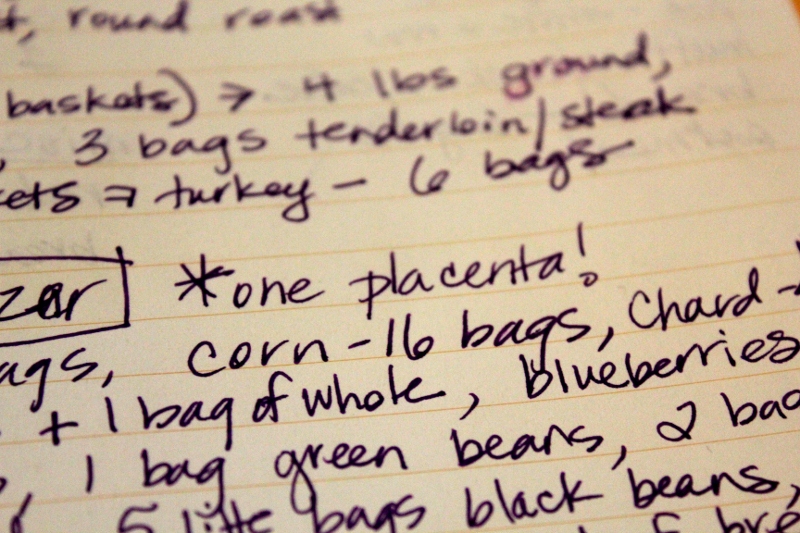 , round roast
baskets) → 4 lbs ground,
, 3 bags tenderloin/steak
ets → turkey - 6 bags
zer *one placenta!
ags, corn - 16 bags, chard -
+ 1 bag of whole, blueberries
, 1 bag green beans, 2 bag
5 little bags black beans,